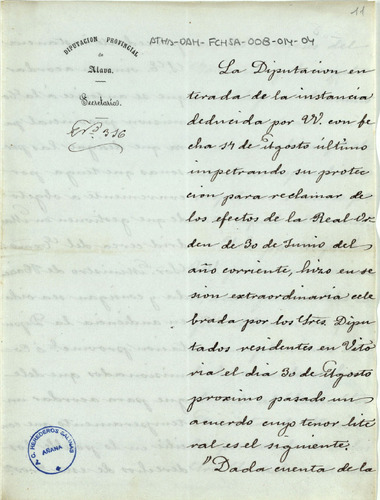 11
ATHA-DAH-FCHSA-008-014-04
DIPUTACION PROVINCIAL
de
Alava.
Secretaría
Nº 316
La Diputacion en
terada de la instancia
deducida por VV. con fe
cha 14 de Agosto último
impetrando su protec
cion para reclamar de
los efectos de la Real Or
den de 30 de Junio del
año corriente, hizo en se
sion extraordinaria cele
brada por los Sres. Dipu
tados residentes en Vito
ria el dia 30 de Agosto
proximo pasado un
acuerdo cuyo tenor lite
ral es el siguiente.
"Dada cuenta de la
A.C. HEREDEROS SALINAS
ARANA